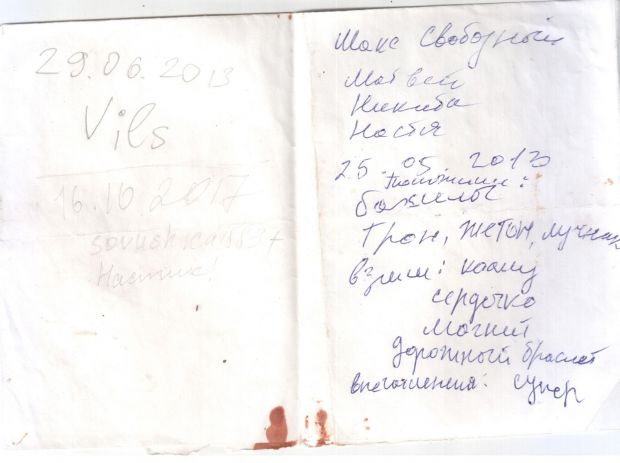 29.06.2013
Vils
16.10.2017
Настик!
Макс Свободный
Матвей
Никита
Настя
25.05.2013
Положили:
Грон, жетон, лучник
Взяли:
сердечко
магнит
Дорожный браслет
впечатления: супер